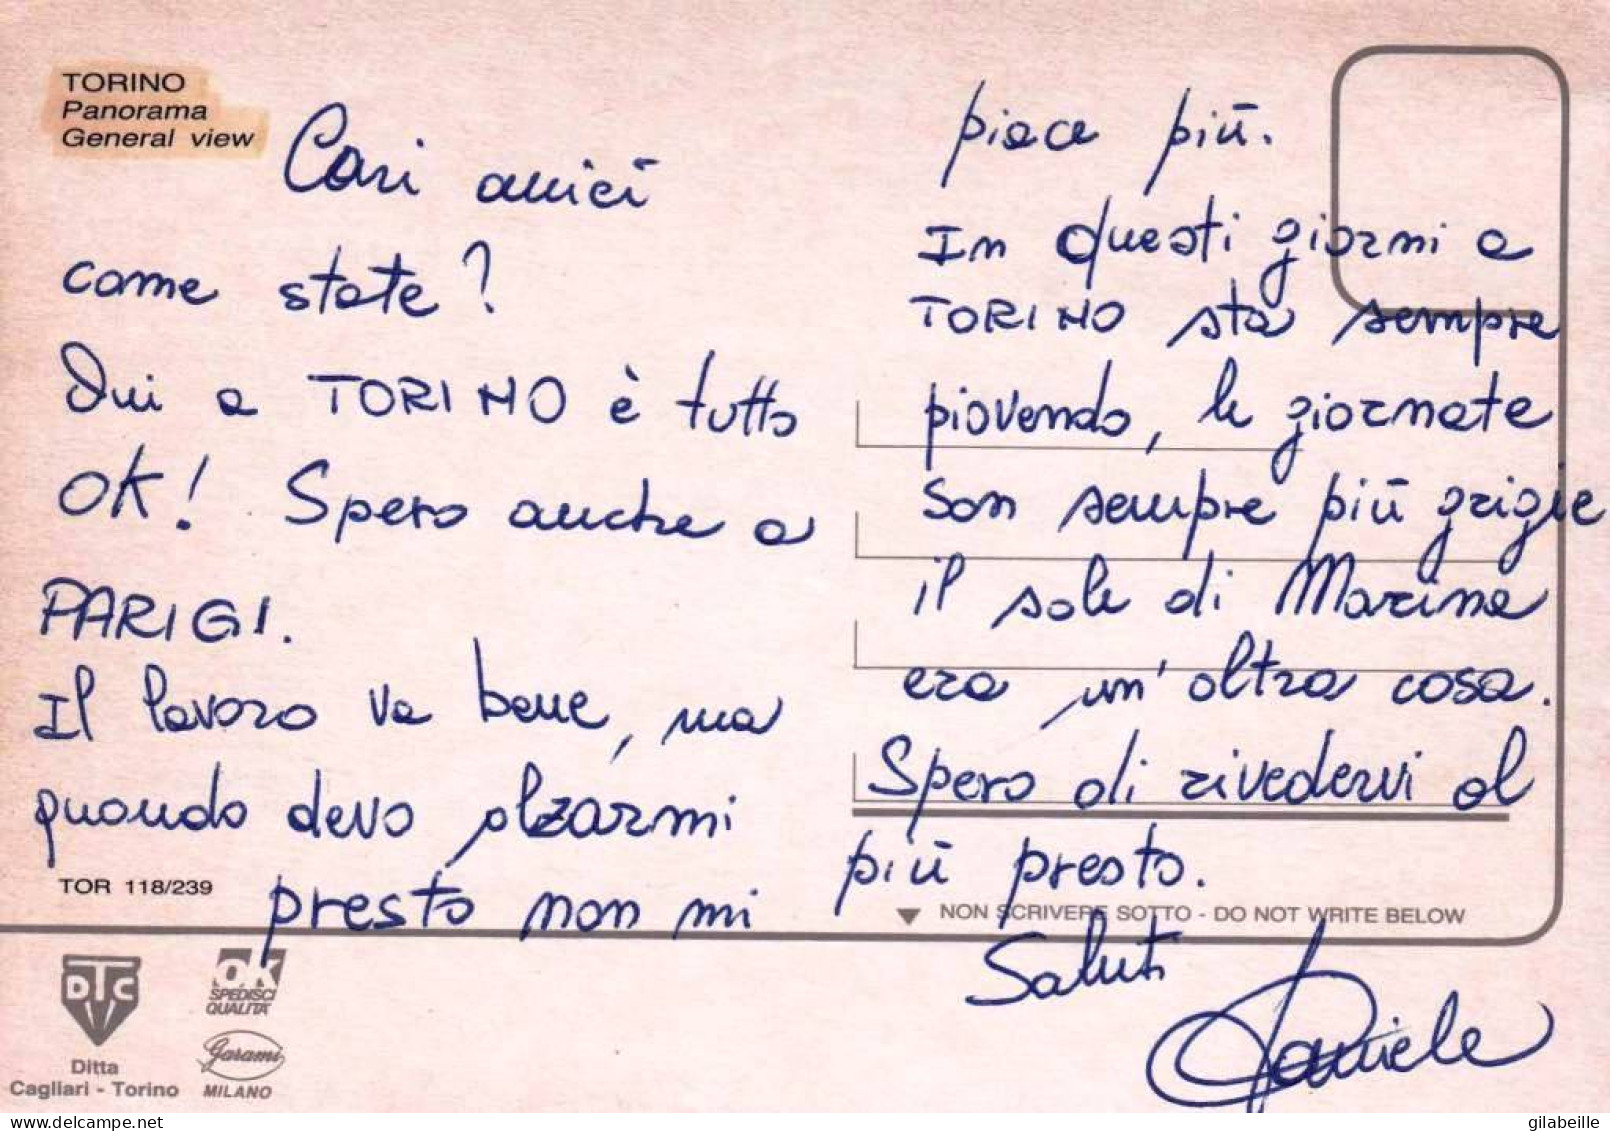 TORINO
Panorama
General view
Cari amici
come state?
Qui a TORINO è tutto
OK! Spero anche a
PARIGI.
Il lavoro va bene, ma
quando devo alzarmi
presto non mi
piace più.
In questi giorni a
TORINO sta sempre
piovendo, le giornate
son sempre più grigie
il sole di Marina
era un'altra cosa.
Spero di rivedervi al
più presto.
Saluti
Daniele
TOR 118/239
NON SCRIVERE SOTTO - DO NOT WRITE BELOW
DTC
Ditta
Cagliari - Torino
OK
SPEDISCI
QUALITÀ
Garami
MILANO
TORINO
gilabeille